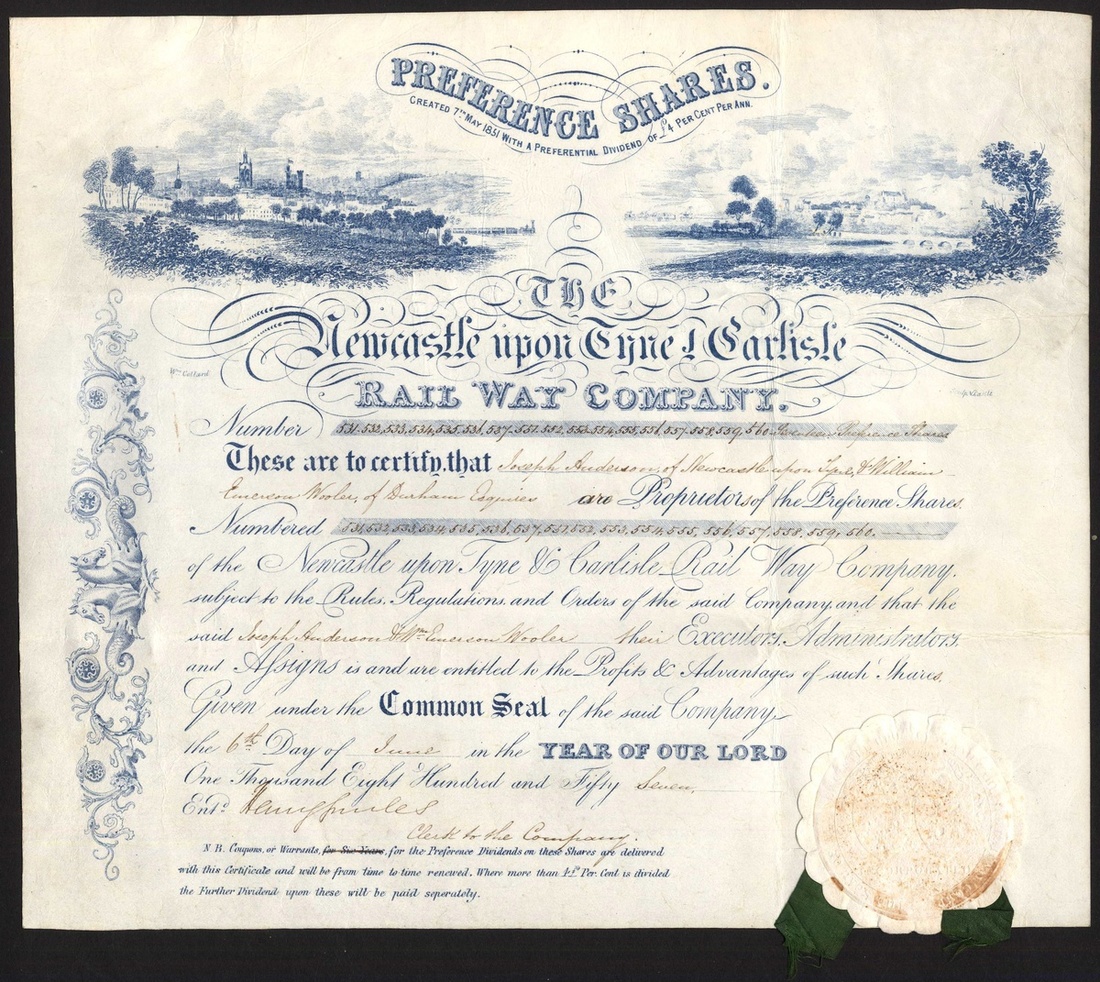 PREFERENCE SHARES.
CREATED 7TH MAY 1851 WITH A PREFERENTIAL DIVIDEND OF £4 PER CENT PER ANN.
THE
Newcastle upon Tyne & Carlisle
Wm Collard
RAIL WAY COMPANY.
Number 531. 532. 533. 534. 535. 536. 537. 551. 552. 553. 554. 555. 556. 557. 558. 559. 560. Seventeen Preference Shares
These are to certify, that Joseph Anderson, of Newcastle upon Tyne, & William
Emerson Wooler, of Durham Esquires are Proprietors of the Preference Shares.
Numbered 531. 532. 533. 534. 535. 536. 537. 551. 552. 553. 554. 555. 556. 557. 558. 559. 560.
of the Newcastle upon Tyne & Carlisle Rail Way Company.
subject to the Rules, Regulations, and Orders of the said Company, and that the
said Joseph Anderson & Wm Emerson Wooler their Executors, Administrators,
and Assigns is and are entitled to the Profits & Advantages of such Shares,
Given under the Common Seal of the said Company
the 6th Day of June in the YEAR OF OUR LORD
One Thousand Eight Hundred and Fifty Seven.
Entd.
Clerk to the Company.
N.B. Coupons, or Warrants, for Six Years, for the Preference Dividends on these Shares are delivered
with this Certificate and will be from time to time renewed. Where more than 4 Per. Cent is divided
the Further Dividend upon these will be paid seperately.